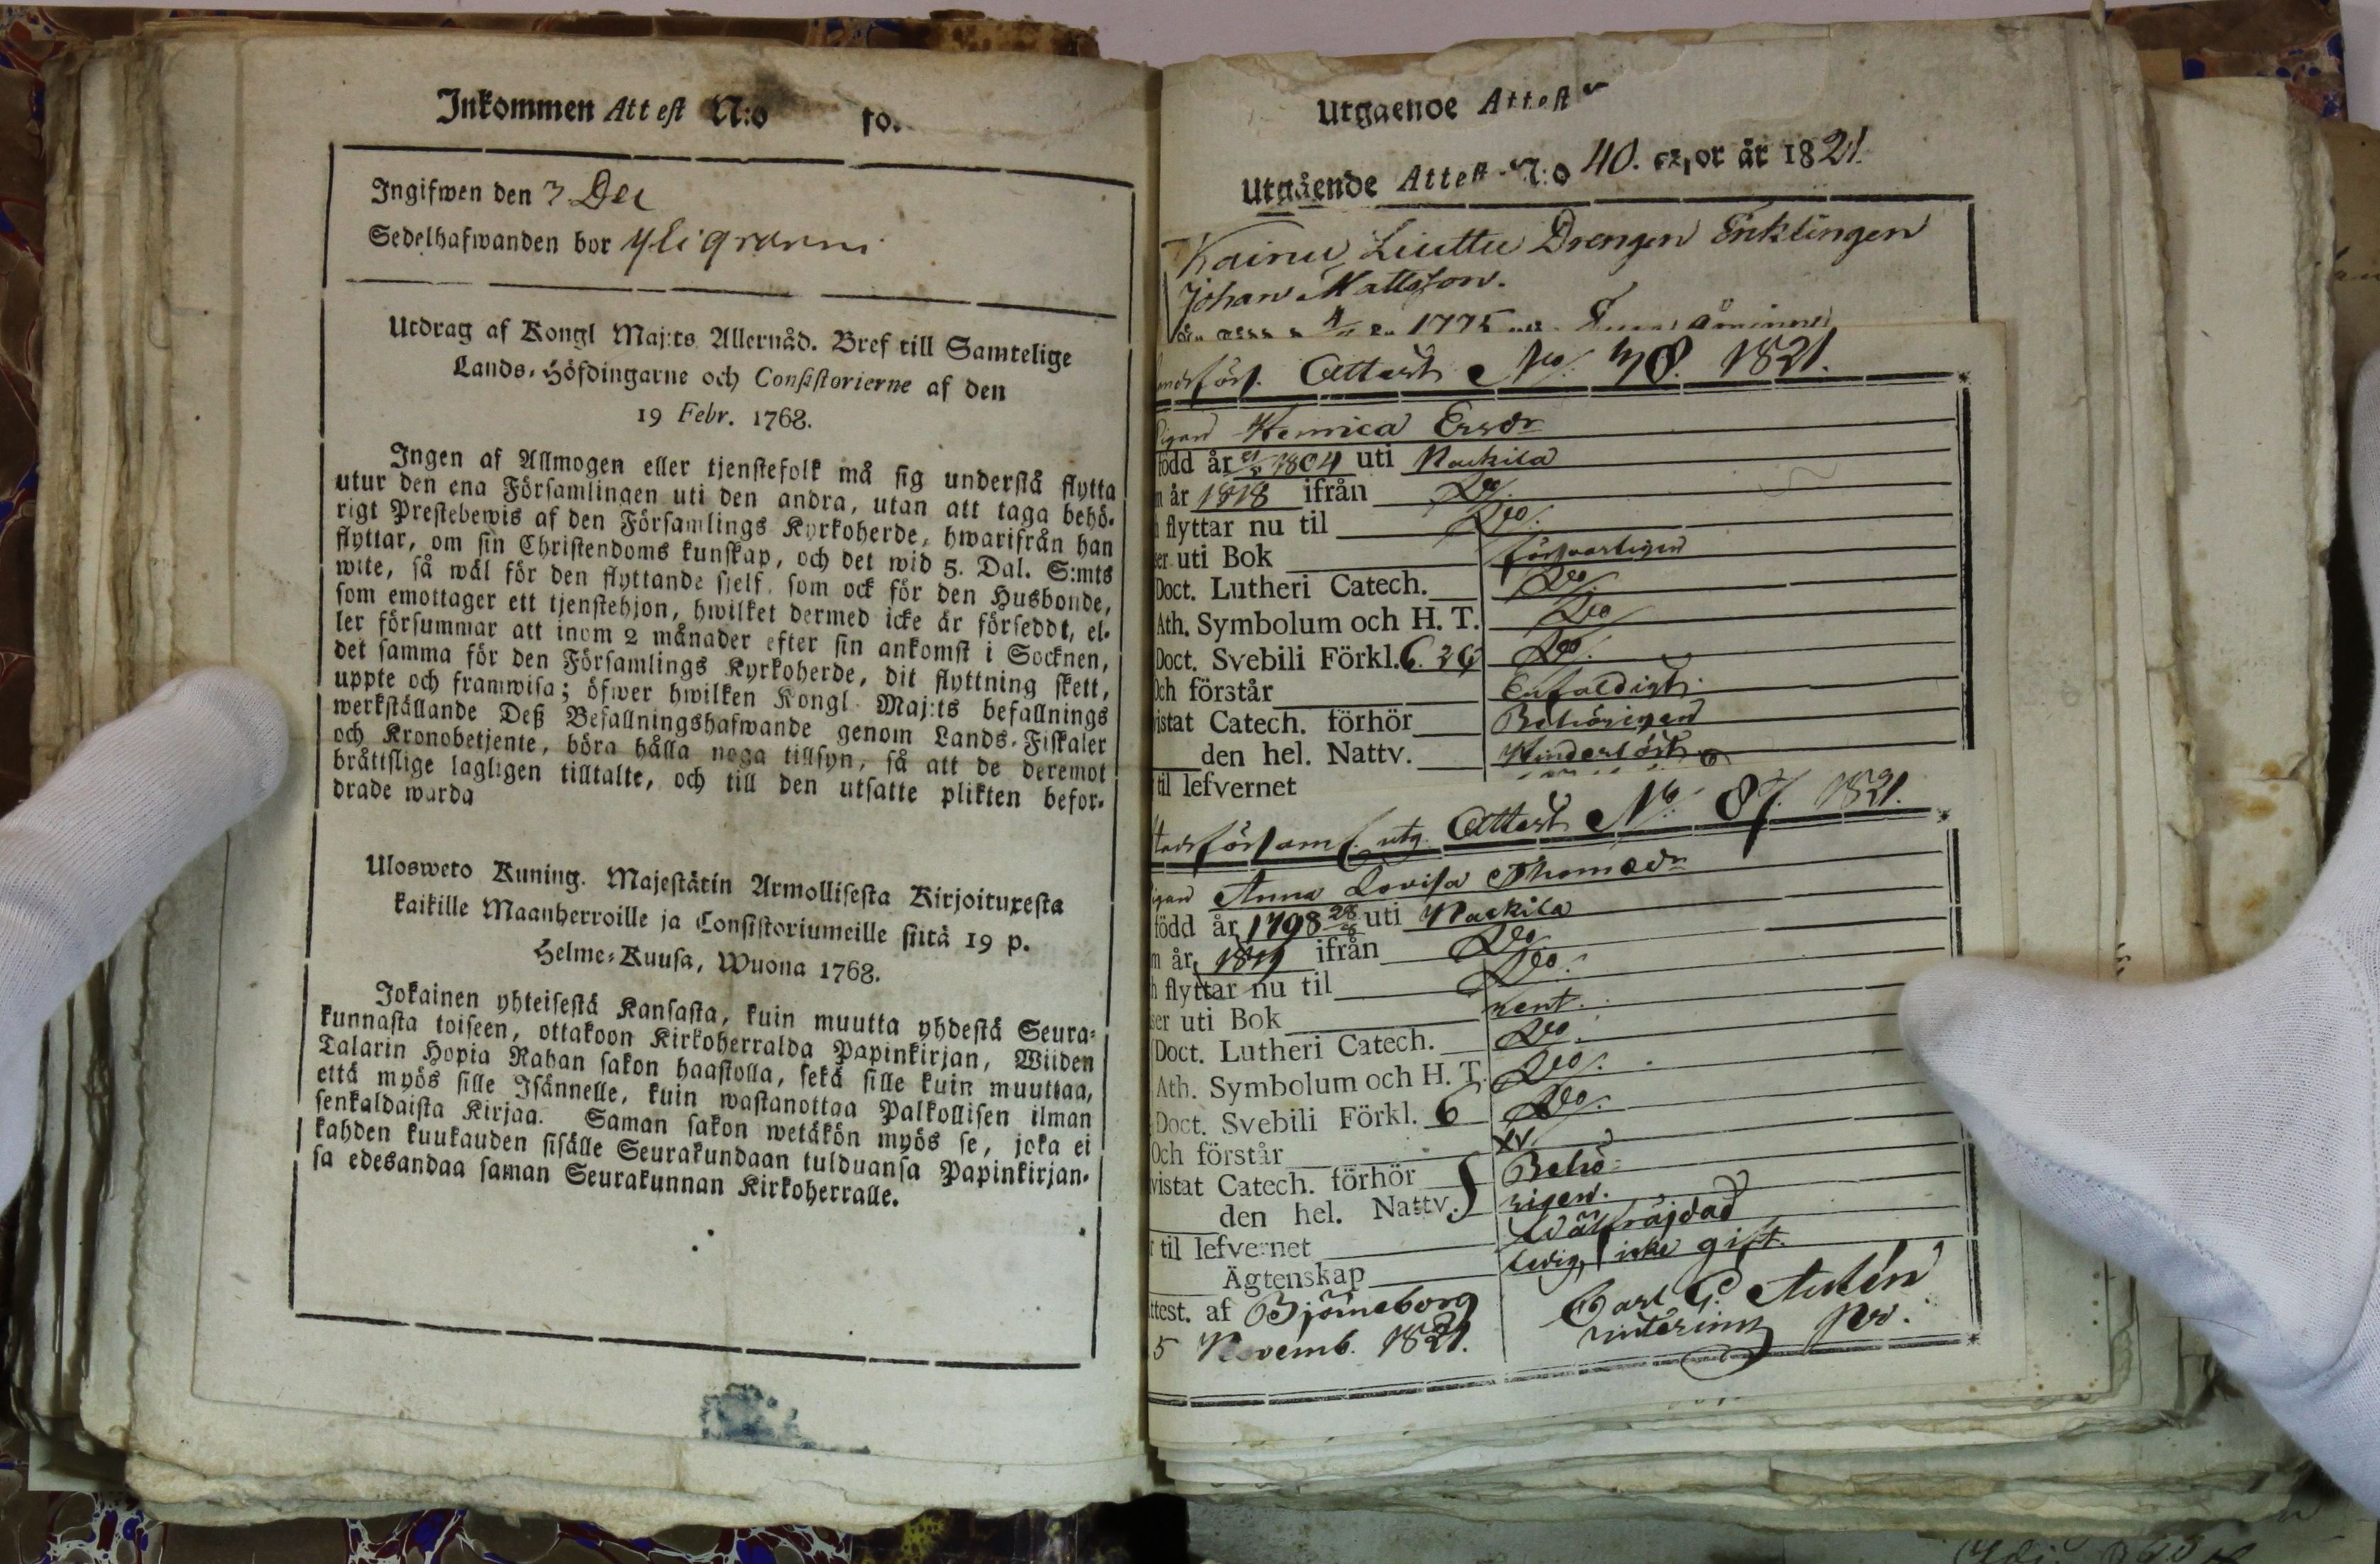 Inkommen Attest N:o 10.
Ingifwen den 3 Dec
Sedelhafwanden bor Yli
Utdrag af Kongl Maj:ts Allernåd. Bref till Samtelige
Lands-Höfdingarne och Consistorierne af den
19 Febr. 1768.
Ingen af Allmogen eller tjenstefolk må sig understå flytta
utur den ena Församlingen uti den andra, utan att taga behö-
rigt Prestebewis af den Församlings Kyrkoherde, hwarifrån han
flyttar, om sin Christendoms kunskap, och det wid 5. Dal. S:mts
wite, så wäl för den flyttande sjelf, som ock för den Husbonde,
som emottager ett tjenstehjon, hwilket dermed icke är förseddt, el-
ler försummar att inom 2 månader efter sin ankomst i Socknen,
det samma för den Församlings Kyrkoherde, dit flyttning skett,
uppte och framwisa; öfwer hwilken Kongl Maj:ts befallnings
werkställande Deß Befallningshafwande genom Lands-Fiskaler
och Kronobetjente, böra hålla noga tillsyn, så att de deremot
bråttslige lagligen tilltalte, och till den utsatte plikten befor-
drade warda
Ulosweto Kuning. Majestätin Armollisesta Kirjoituxesta
kaikille Maanherroille ja Consistoriumeille siitä 19 p.
Helme-Kuusa, Wuona 1768.
Jokainen yhteisestä Kansasta, kuin muutta yhdestä Seura-
kunnasta toiseen, ottakoon Kirkoherralda Papinkirjan, Wiiden
Talarin Hopia Rahan sakon haastolla, sekä sille kuin muuttaa,
että myös sille Isännelle, kuin wastanottaa Palkollisen ilman
senkaldaista Kirjaa. Saman sakon wetäkön myös se, joka ei
kahden kuukauden sisälle Seurakundaan tulduansa Papinkirjan-
sa edesandaa saman Seurakunnan Kirkoherralle.
Utgaende Attest
Utgående Attest N:o 40. för år 1821.
Kainu Liuttu Drengen Enklingen
Johan Mattsson.
1775
förs. Attest No. 1821.
Pigan Henrica Ersdr
född år 1804 uti Nackila
år 1818 ifrån Do.
flyttar nu til Do.
uti Bok försvarligen
Doct. Lutheri Catech. Do.
Ath. Symbolum och H. T. Do
Doct. Svebili Förkl. Do.
Och förstår Enfaldigt.
istat Catech. förhör Behörigen
den hel. Nattv. Hinderlöst
til lefvernet
församl. utg. Attest No. 87. 1821.
Anna Lovisa Thomasdr
född år 1798 28/8 uti Nackila
år ifrån Do.
flyttar nu til Do.
ser uti Bok rent.
Doct. Lutheri Catech. Do.
Ath. Symbolum och H. T. Do.
Doct. Svebili Förkl. 6 Do.
Och förstår
vistat Catech. förhör Behö-
den hel. Nattv. rigen.
til lefvernet Wälfräjdad
Ägtenskap ledig, icke gift.
ttest. af Björneborg Carl G.
5 Novemb. 1821.